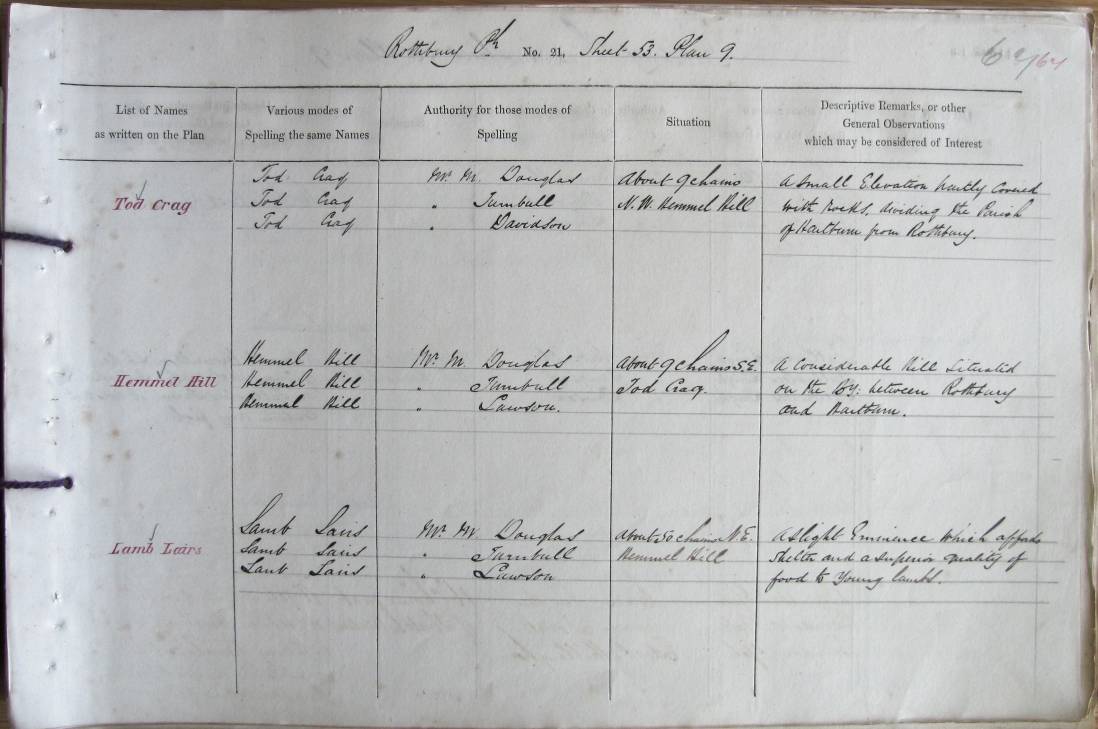 Rothbury Ph No. 21, Sheet 53. Plan 9.
64
List of Names
as written on the Plan
Various modes of
Spelling the same Names
Authority for those modes of
Spelling
Situation
Descriptive Remarks, or other
General Observations
which may be considered of Interest
Tod Crag
Tod Crag
Tod Crag
Tod Crag
Mr. M. Douglas
" Turnbull
" Davidson
About 9 chains
N.W. Hemmel Hill
A small Elevation partly Covered
with rocks, dividing the Parish
of Hartburn from Rothbury.
Hemmel Hill
Hemmel Hill
Hemmel Hill
Hemmel Hill
Mr. M. Douglas
" Turnbull
" Lawson.
About 9 chains S.E.
Tod Crag.
A Considerable Hill Situated
on the By: between Rothbury
and Hartburn.
Lamb Lairs
Lamb Lairs
Lamb Lairs
Lamb Lairs
Mr. M. Douglas
" Turnbull
" Lawson
About 50 chains N.E.
Hemmel Hill
A slight Eminence which affords
shelter and a superior quality of
food to young lambs.